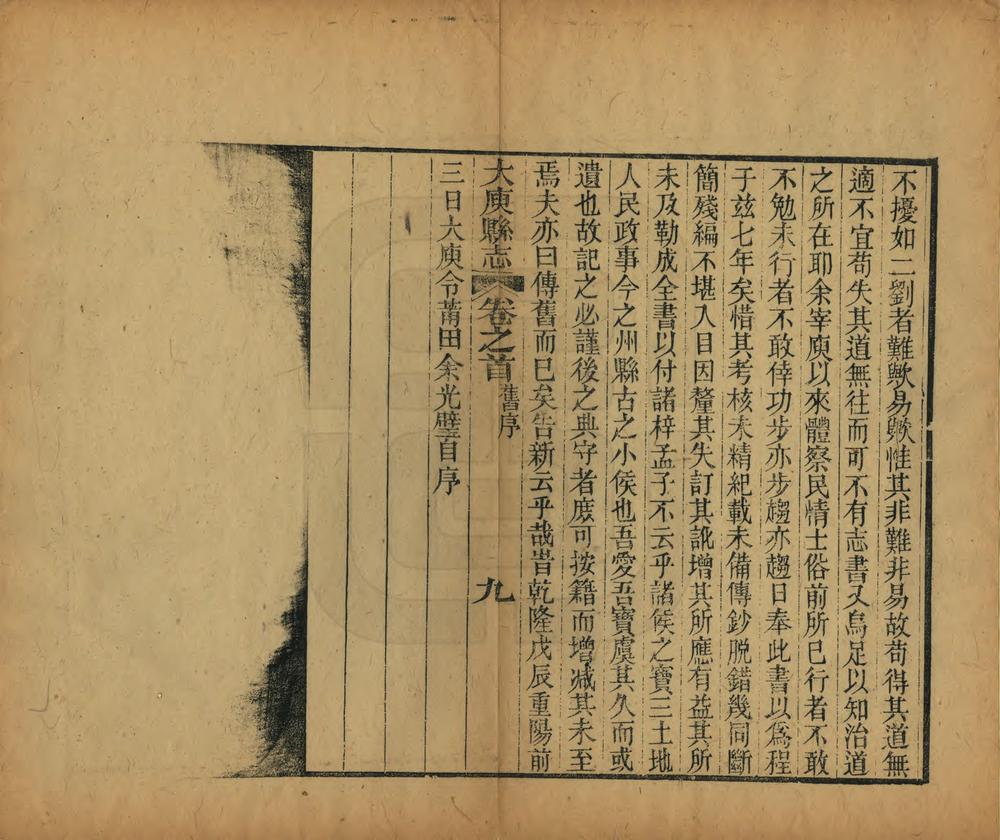 不擾如二劉者難歟易歟惟其非難非易故苟得其道無
適不宜苟失其道無往而可不有志書又烏足以知治道
之所在耶余宰庾以來體察民情土俗前所已行者不敢
不勉未行者不敢倖功步亦步趨亦趨日奉此書以爲程
于茲七年矣惜其考核未精紀載未備傳鈔脫錯幾同斷
簡殘編不堪入目因釐其失訂其訛增其所應有益其所
未及勒成全書以付諸梓孟子不云乎諸侯之寶三土地
人民政事今之州縣古之小侯也吾愛吾寶虞其久而或
遺也故記之必謹後之典守者庶可按籍而增减其未至
焉夫亦曰傳舊而已矣告新云乎哉旹乾隆戊辰重陽前
大庾縣志 卷之首 舊序 九
三日大庾令莆田余光璧自序